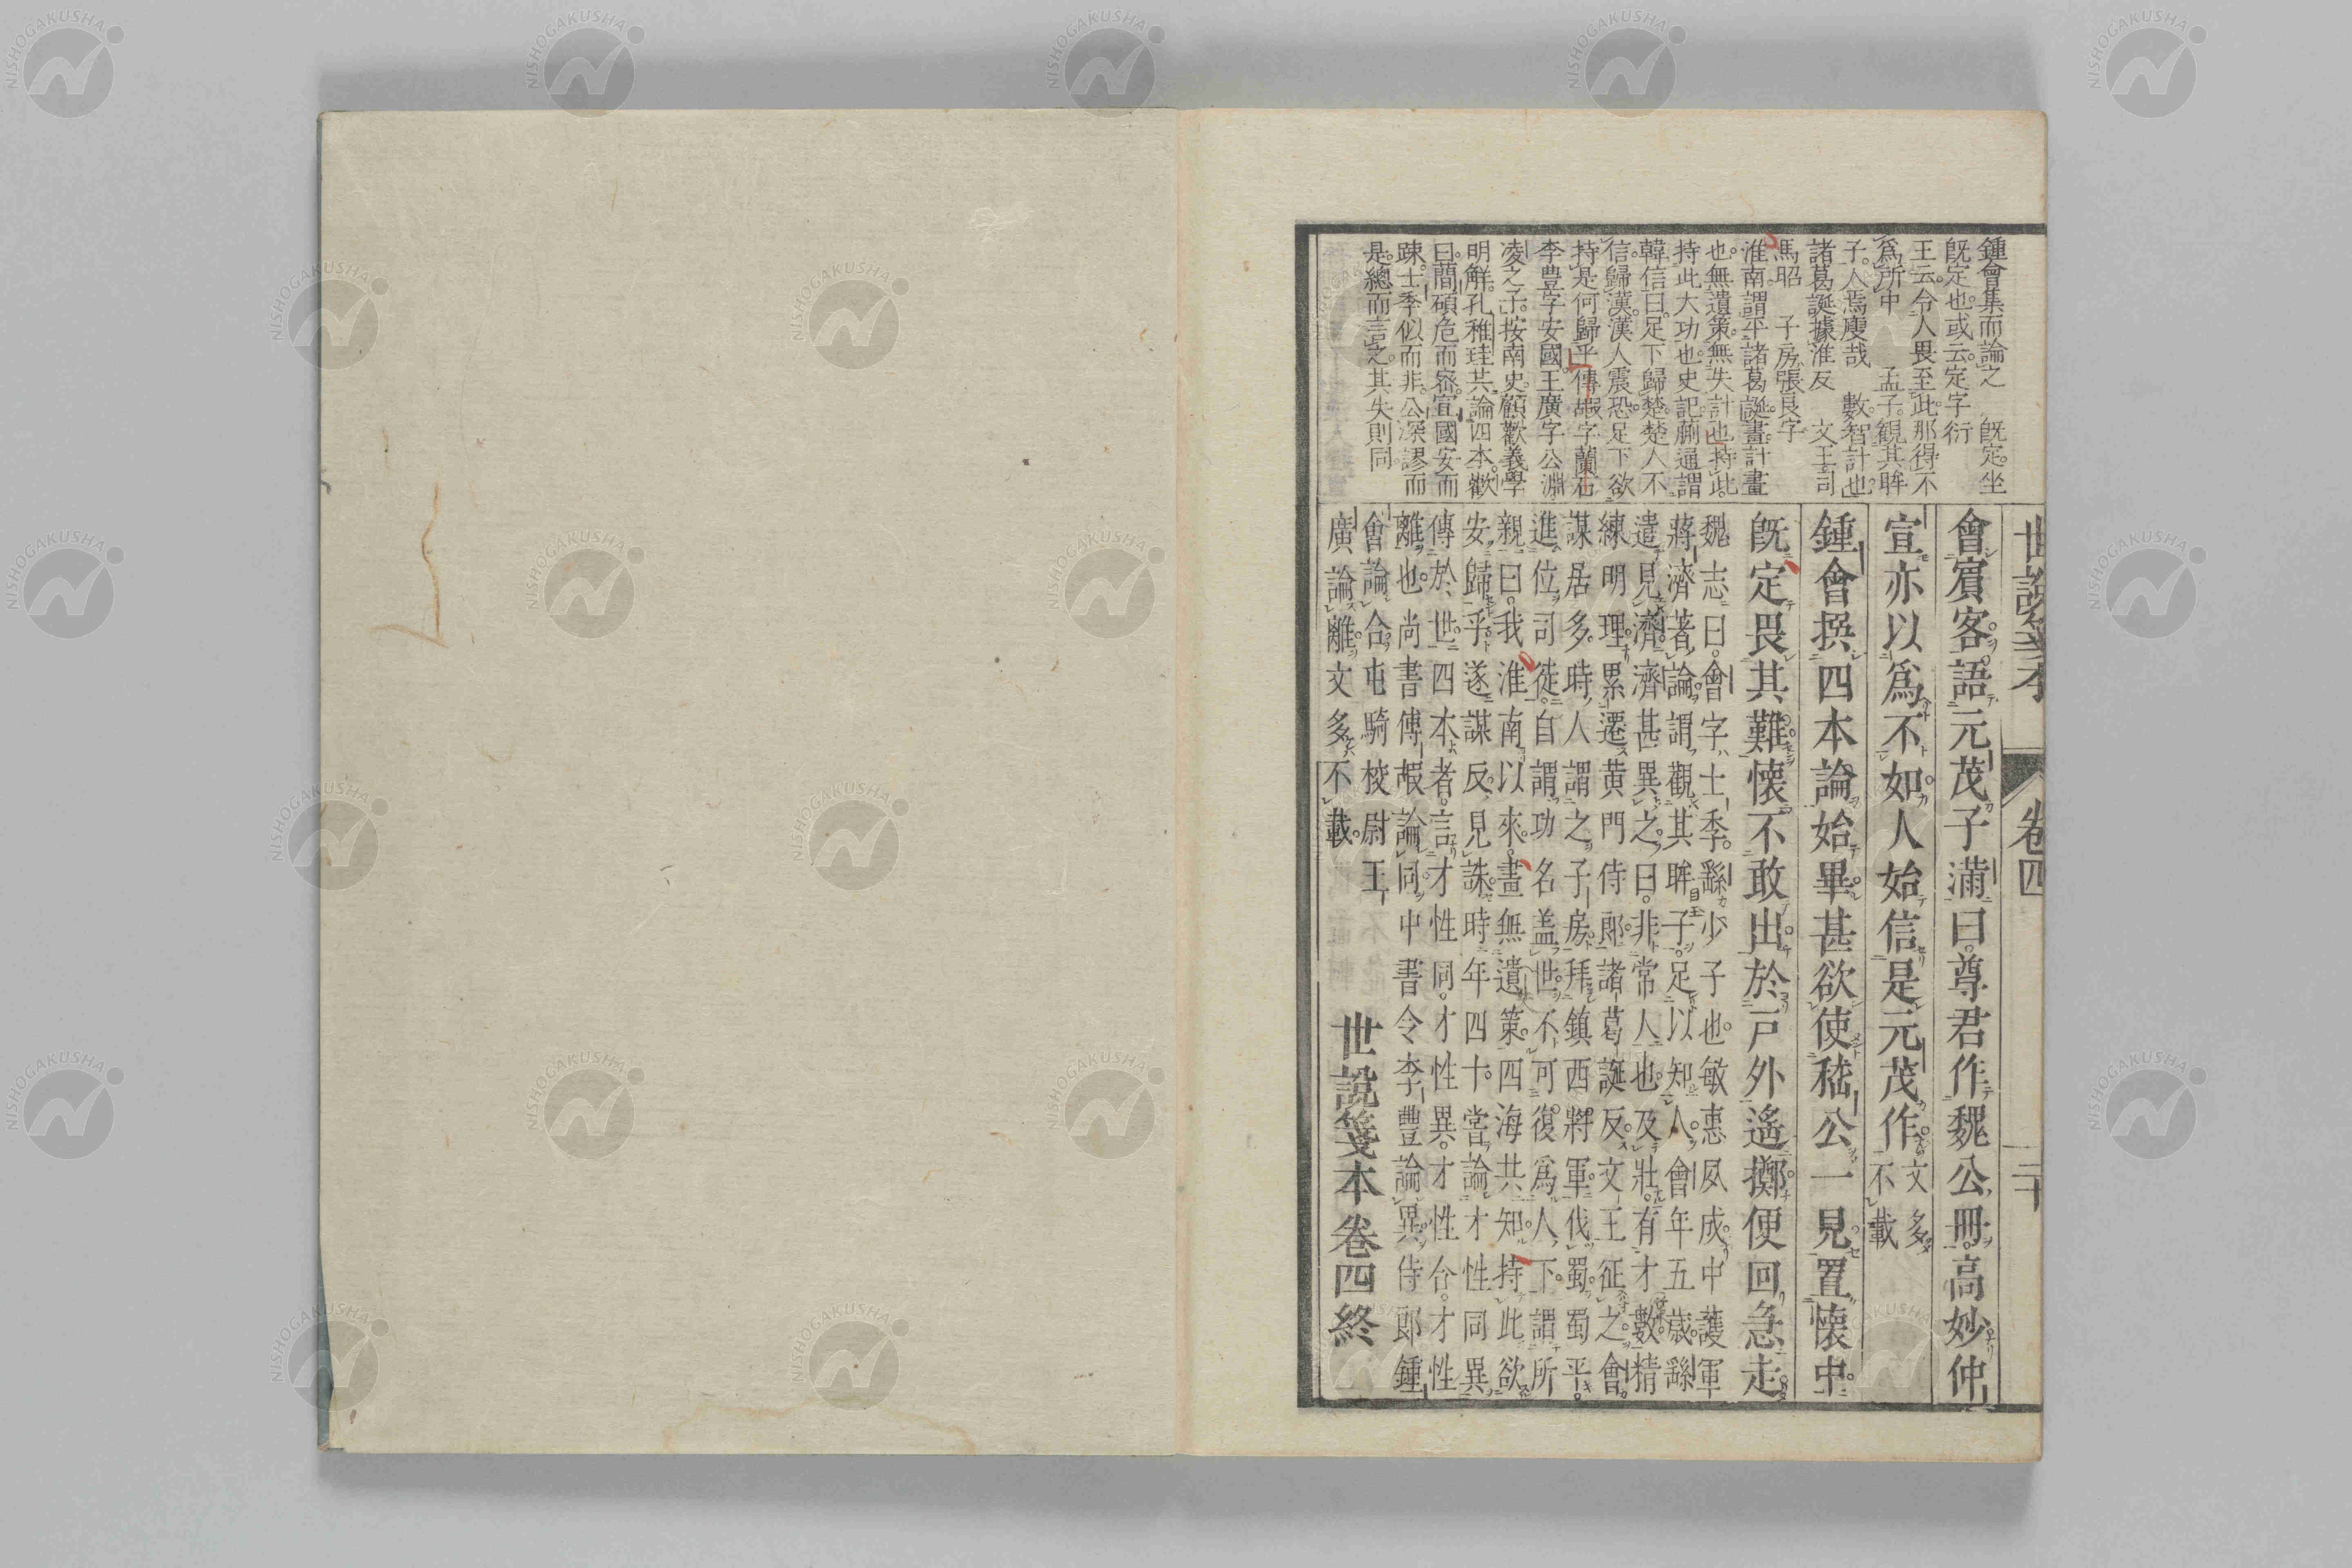 世說箋本
卷四
二十
鍾會集而論之　旣定坐
旣定也。或云。定字衍
王云。令人畏至此。那得不
爲所中　孟子。觀其眸
子。人焉廋哉　數。智計也
諸葛誕據淮反　文王司
馬昭　子房張良字
淮南。謂平諸葛誕。畫。計畫
也。無遺策。無失計也。持此。
持此大功也。史記。蒯通謂
韓信曰。足下歸楚。楚人不
信。歸漢。漢人震恐。足下欲
持是何歸乎　傅嘏字蘭石
李豊字安國。王廣字公淵
凌之子。按南史。顧歡義學
明解。孔稚珪共論四本。歡
曰。蘭碩危而密。宣國安而
踈。士季似而非。公深謬而
是。總而言之。其失則同。
會賓客語元茂子滿曰。尊君作魏公冊。高妙仲
宣亦以爲不如。人始信是元茂作。文多不載
鍾會撰四本論始畢甚欲使嵇公一見置懷中。
旣定畏其難懷不敢出於戶外遙擲便回急走。
魏志曰。會字士季。繇少子也。敏惠夙成。中護軍
蔣濟著論。謂觀其眸子。足以知人。會年五歲。繇
遣見濟。濟甚異之。曰。非常人也。及壯。有才數。精
練明理。累遷黃門侍郎。諸葛誕反。文王征之。會
謀居多。時人謂之子房。拜鎮西將軍。伐蜀。蜀平。
進位司徒。自謂功名盖世。不可復爲人下。謂所
親曰。我淮南以來。畫無遺策。四海共知。持此欲
安歸乎。遂謀反。見誅。時年四十。嘗論才性同異
傳於世。四本者。言才性同。才性異。才性合。才性
離也。尚書傅嘏論同。中書令李豐論異。侍郎鍾
會論合。屯騎校尉王
廣論離。文多不載。
世說箋本卷四終